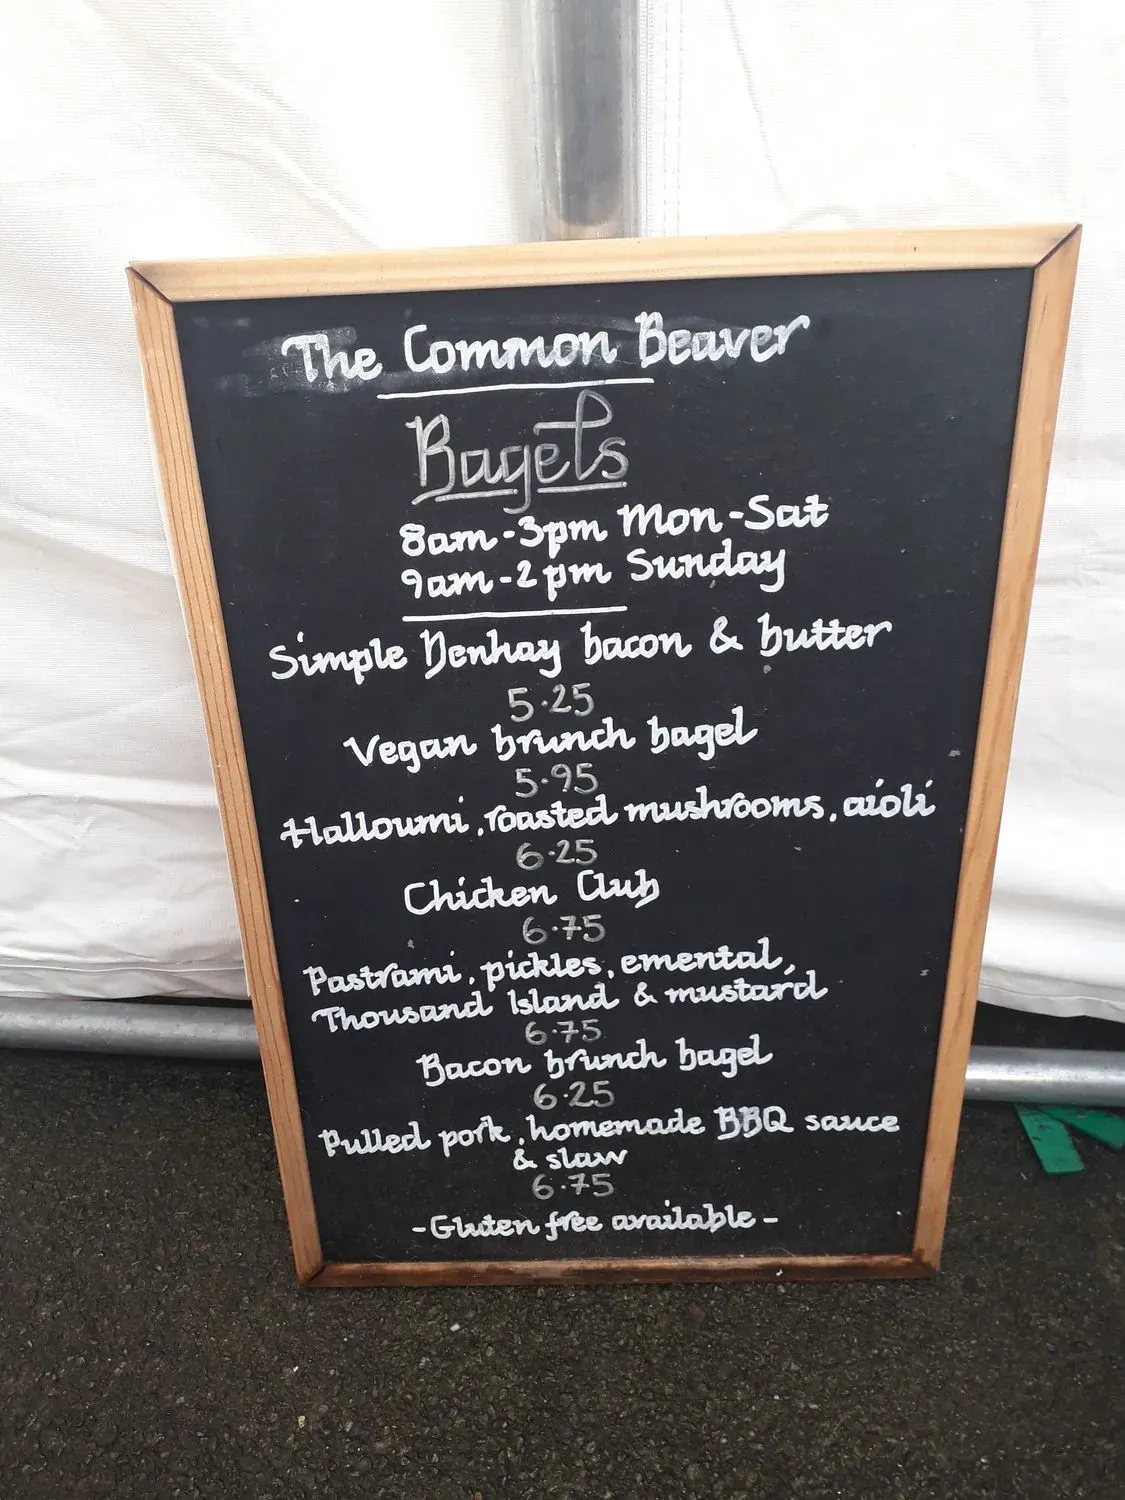 The Common Beaver
Bagels
8am-3pm Mon-Sat
9am-2pm Sunday
Simple Denhay bacon & butter
5.25
Vegan brunch bagel
5.95
Halloumi, roasted mushrooms, aioli
6.25
Chicken Club
6.75
Pastrami, pickles, emental,
Thousand Island & mustard
6.75
Bacon brunch bagel
6.25
Pulled pork, homemade BBQ sauce
& slaw
6.75
- Gluten free available -